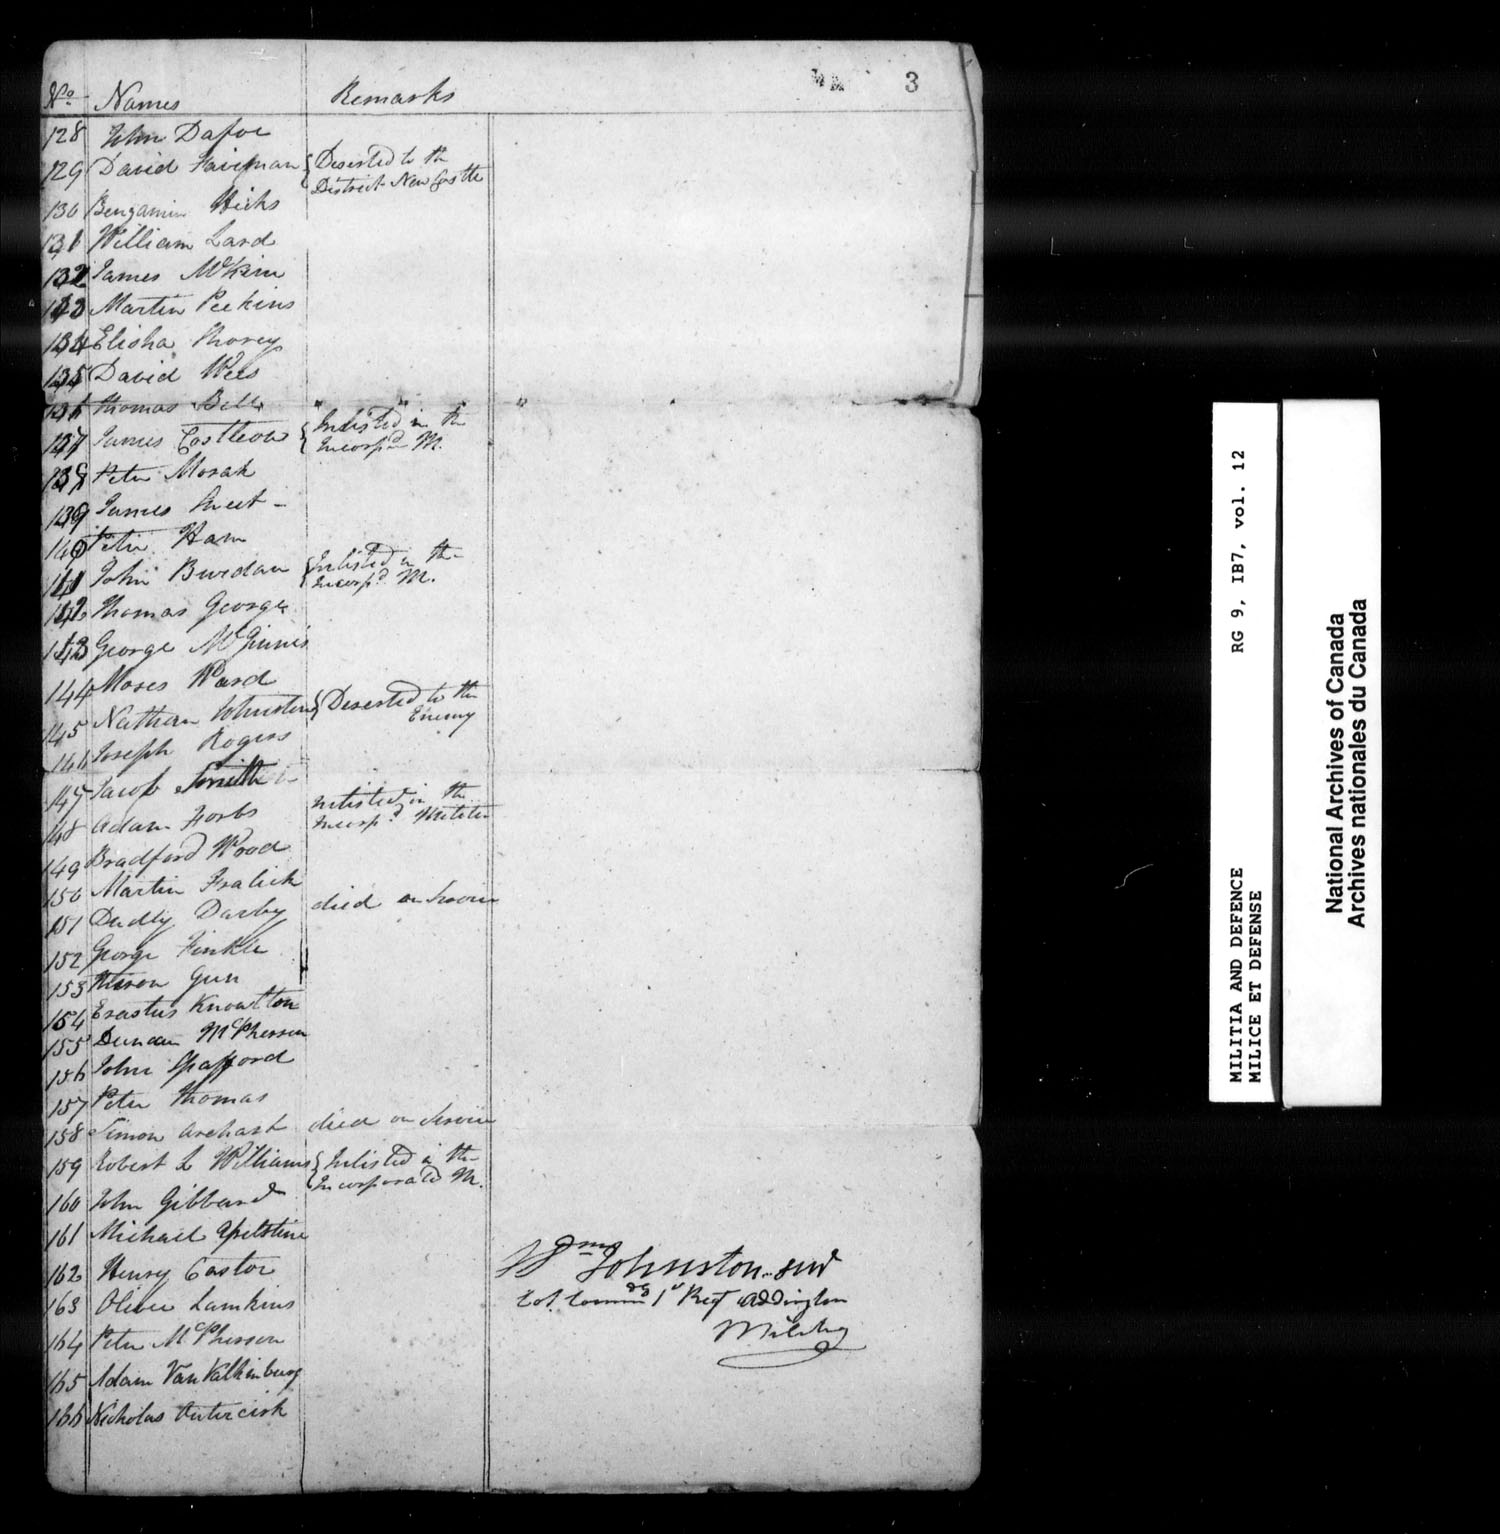 3
No Names Remarks
128 John Dafoe
129 David Fairman { Deserted to the
District New Castle
130 Benjamin Hicks
131 William Lard
132 James McKim
133 Martin Perkins
134 Elisha Shorey
135 David Wees
136 Thomas Bell " " " "
137 James Costleon { Inlisted in the
Incorpd M.
138 Peter Mosah
139 James Sweet -
140 Peter Ham
141 John Burdan { Inlisted in the
Incorpd M.
142 Thomas George
143 George McGinnis
144 Moses Ward
145 Nathan Johnston { Deserted to the
Enemy
146 Joseph Rogers
147 Jacob Smith
148 Adam Forbs Inlisted in the
Incorpd Militia
149 Bradford Wood
150 Martin Fralick
151 Dudly Darby died on Service
152 George Finkle
153 Huron Gun
154 Erastus Knowlton
155 Duncan McPherson
156 John Spafford
157 Peter Thomas
158 Simon Orchart died on Service
159 Robert L Williams { Inlisted in the
Incorporated M.
160 John Gibbard
161 Michael Apelstine
162 Henry Castor
163 Oliver Lamkins
164 Peter McPherson
165 Adam VanValkinburg
166 Nicholas
Wm Johnston
Col. Commdg 1st Regt Addington
Militia
MILITIA AND DEFENCE RG 9, IB7, vol. 12
MILICE ET DEFENSE
National Archives of Canada
Archives nationales du Canada